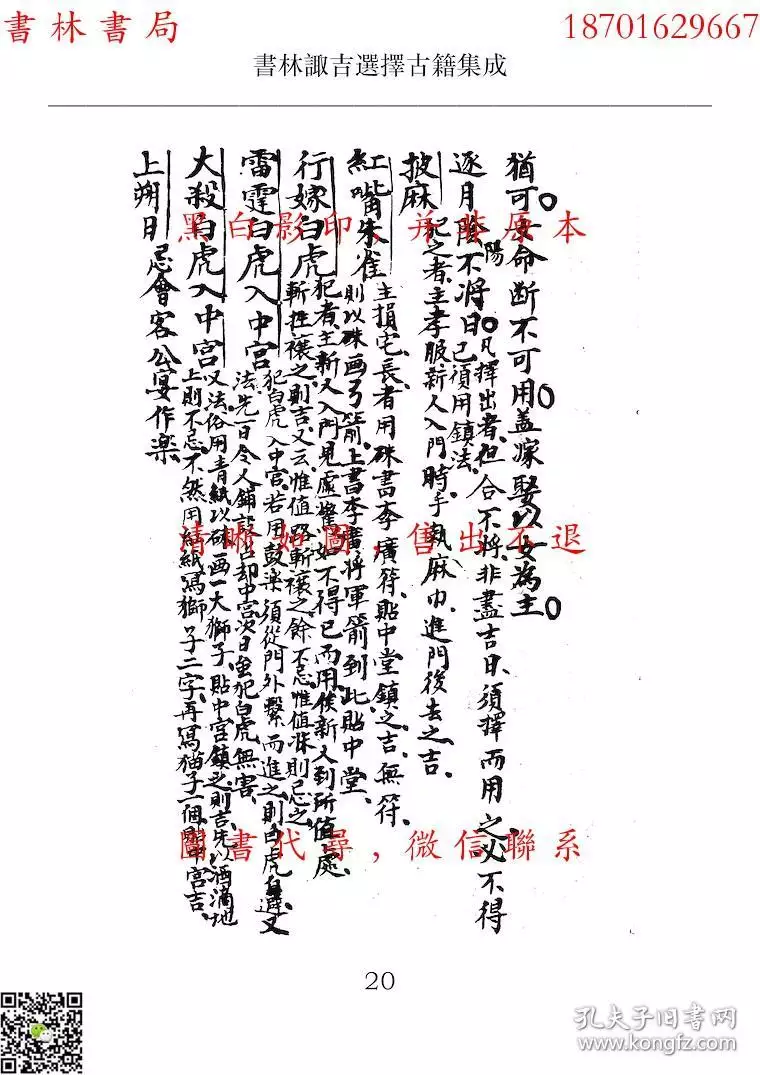 書林書局
18701629667
書林諏吉選擇古籍集成
猶可女命斷不可用蓋嫁娶以女為主
逐月陰陽不將日 凡擇出者但合不將非盡吉日須擇而用之必不得
已須用鎮法
披麻 犯之者主孝服新人入門時手執麻巾進門後去之吉
紅嘴朱雀 主損宅長者用硃書李廣符貼中堂鎮之吉無符
則以硃画弓箭上書李廣將軍箭到此貼中堂
行嫁白虎 犯者主新人入門見虛驚如不得已而用俟新人到所值處
斬牲禳之則吉又云惟值路斬禳之餘不忌惟值床則忌之
雷霆白虎入中宮 犯白虎入中宮若用鼓樂須從門外繫而進之則白虎自避又
法先一日令人鋪設吉却中宮次日虽犯白虎無害
大殺白虎入中宮 又法俗用青紙以硃画一大獅子貼中宮鎮之則吉先以酒滴地
上則不忌不然用紙寫獅子二字再寫猫子一個貼中宮吉
上朔日 忌會客公宴作樂
黑白影印，并非原本
清晰如圖，售出不退
圖書代尋，微信聯系
20
孔夫子旧書网
www.kongfz.com